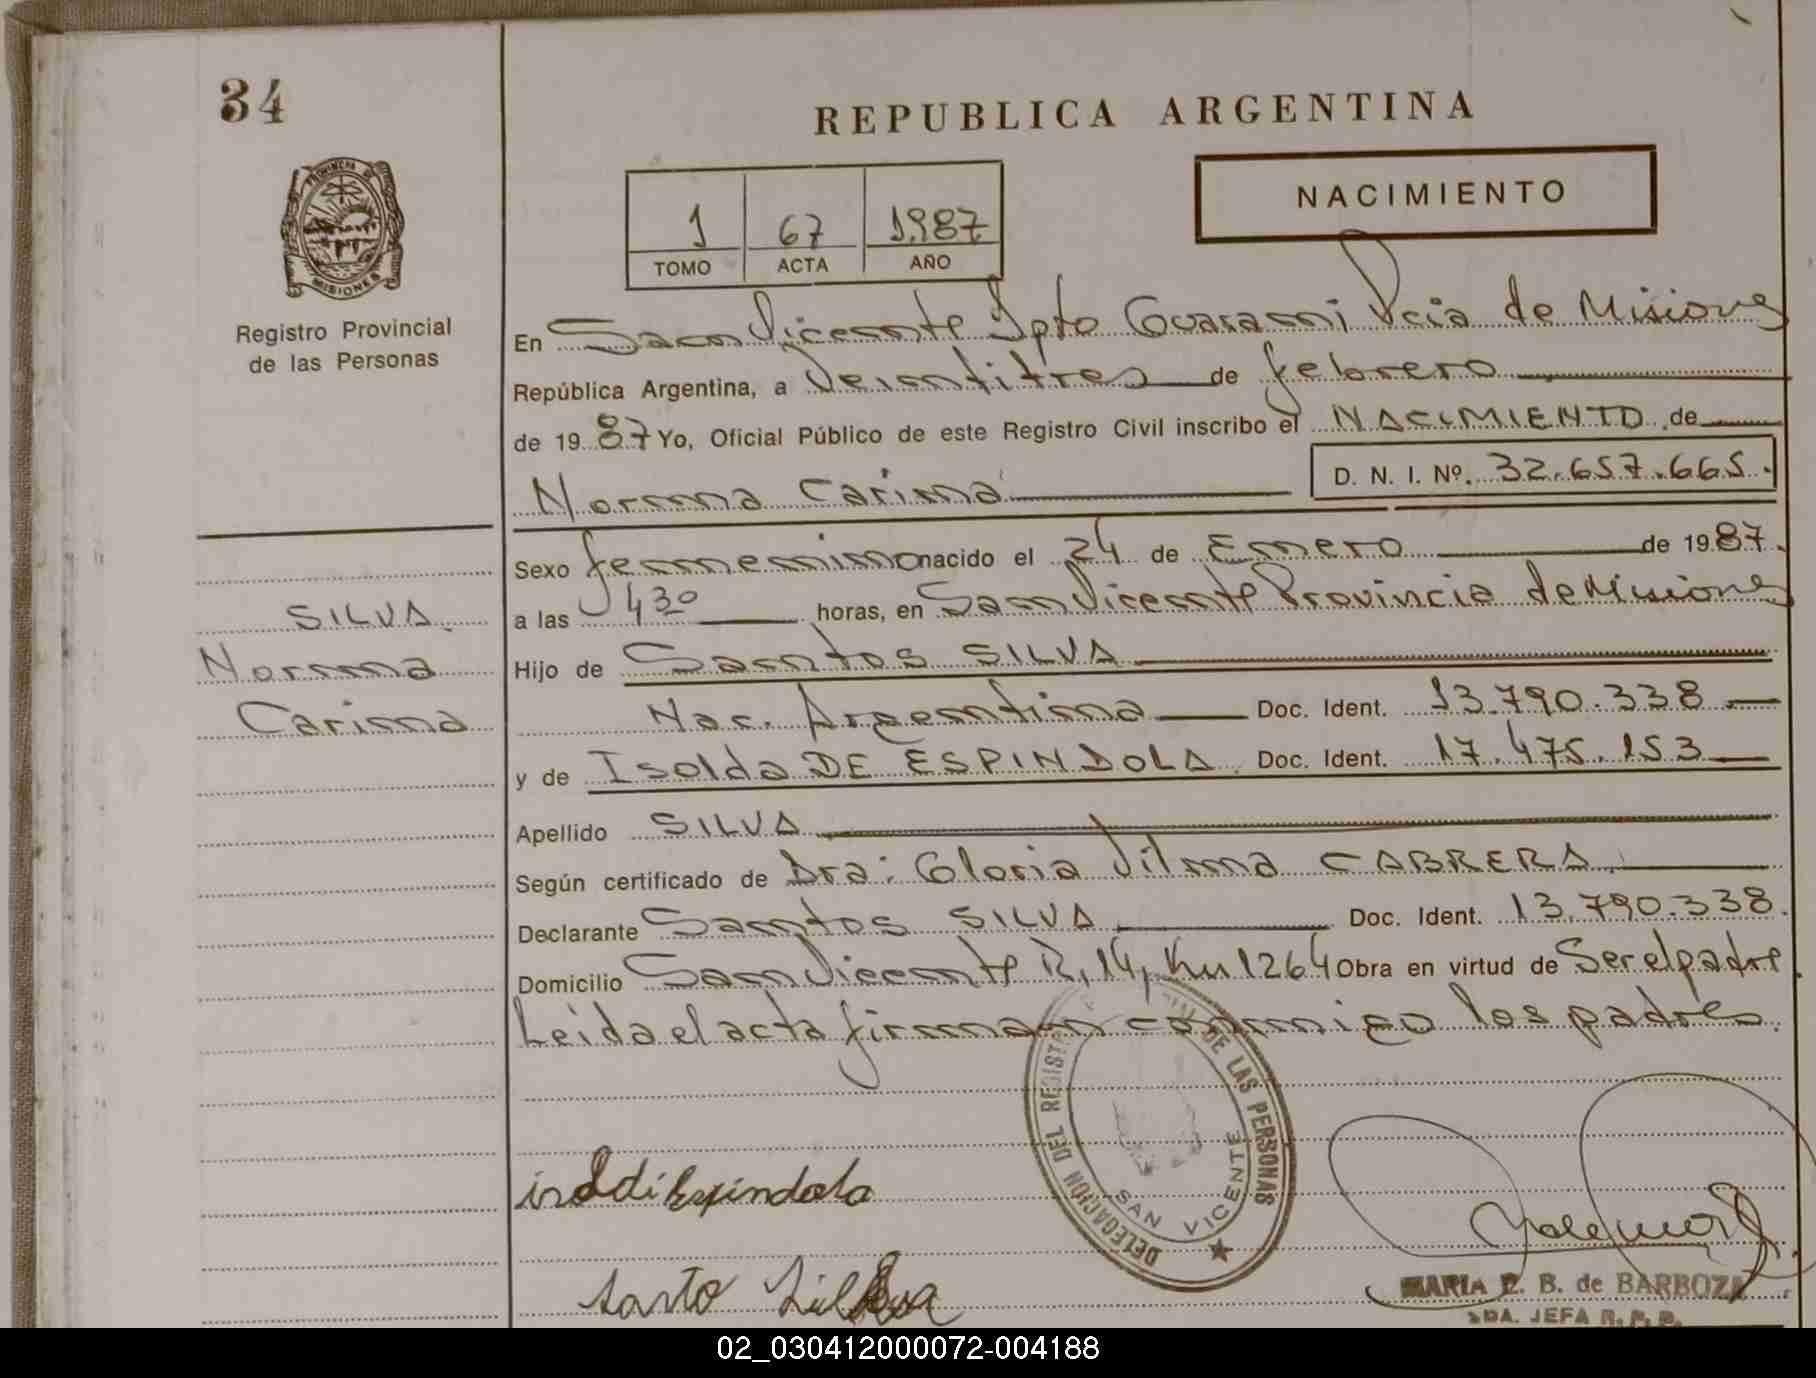 34
REPUBLICA ARGENTINA
NACIMIENTO
1 67 1987
TOMO ACTA AÑO
PROVINCIA DE MISIONES
Registro Provincial
de las Personas
En San Vicente Dpto Guarani Pcia de Misiones
República Argentina, a Veintitres de febrero
de 1987 Yo, Oficial Público de este Registro Civil inscribo el NACIMIENTO de
Norma Carina D. N. I. Nº. 32.657.665.
Sexo femenino nacido el 24 de Enero de 1987.
a las 430 horas, en San Vicente Provincia de Misiones
Hijo de Santos SILVA
Nac. Argentina Doc. Ident. 13.790.338
y de Isolda DE ESPINDOLA. Doc. Ident. 17.475.153
Apellido SILVA
Según certificado de Dra: Gloria Vilma CABRERA.
Declarante Santos SILVA Doc. Ident. 13.790.338.
Domicilio San Vicente R, 14, Km 1264 Obra en virtud de Ser el padre.
Leida el acta firman conmigo los padres.
SILVA.
Norma
Carina
DELEGACION DEL REGISTRO DE LAS PERSONAS
SAN VICENTE
Espindola
Santo Silva
MARIA E. B. de BARBOZA
JEFA R. P. P.
02_030412000072-004188